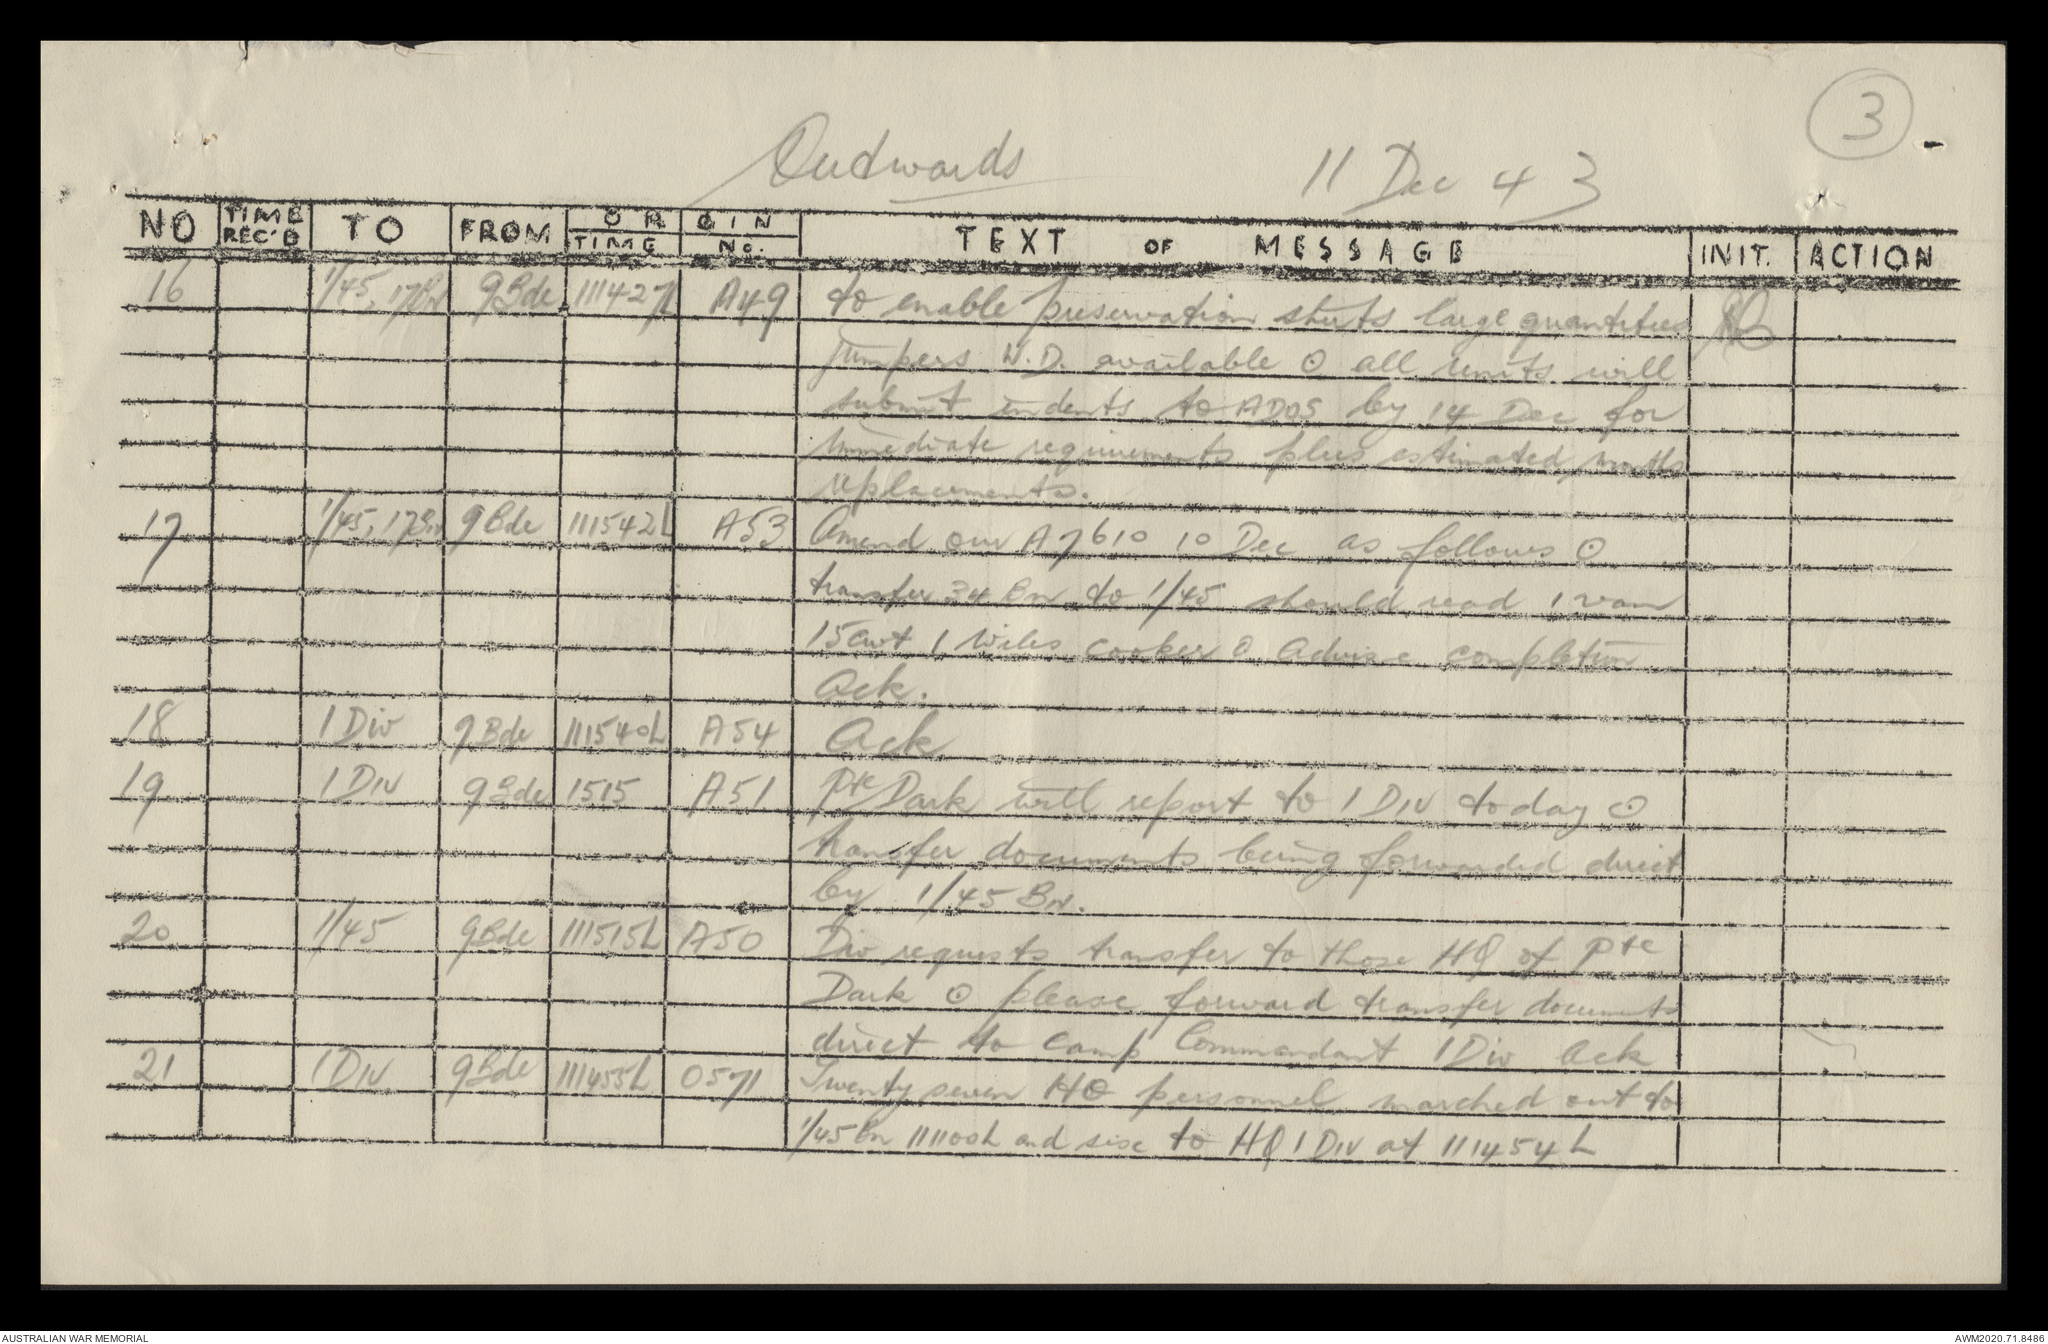 3
Outwards 11 Dec 43
NO TIME REC'D TO FROM ORIGIN TIME No. TEXT OF MESSAGE INIT. ACTION
16 1/45, 17Bn 9Bde 111427L A49 to enable preservation shirts large quantities
jumpers W.D. available ⊙ all units will
submit indents to ADOS by 14 Dec for
immediate requirements plus estimated months
replacements.
17 1/45, 17Bn 9Bde 111542L A53 Amend our A7610 10 Dec as follows ⊙
transfer 34 Bn to 1/45 should read 1 van
15cwt 1 Wiles cooker ⊙ Advise completion
Ack.
18 1 Div 9Bde 111540L A54 Ack
19 1 Div 9Bde 1515 A51 Pte Dark will report to 1 Div today ⊙
transfer documents being forwarded direct
by 1/45 Bn.
20 1/45 9Bde 111515L A50 Div requests transfer to those HQ of Pte
Dark ⊙ please forward transfer documents
direct to Camp Commandant 1 Div Ack
21 1 Div 9Bde 111455L O571 Twenty seven HQ personnel marched out to
1/45 Bn 111100L and six to HQ 1 Div at 111454L
AUSTRALIAN WAR MEMORIAL AWM2020.71.8486